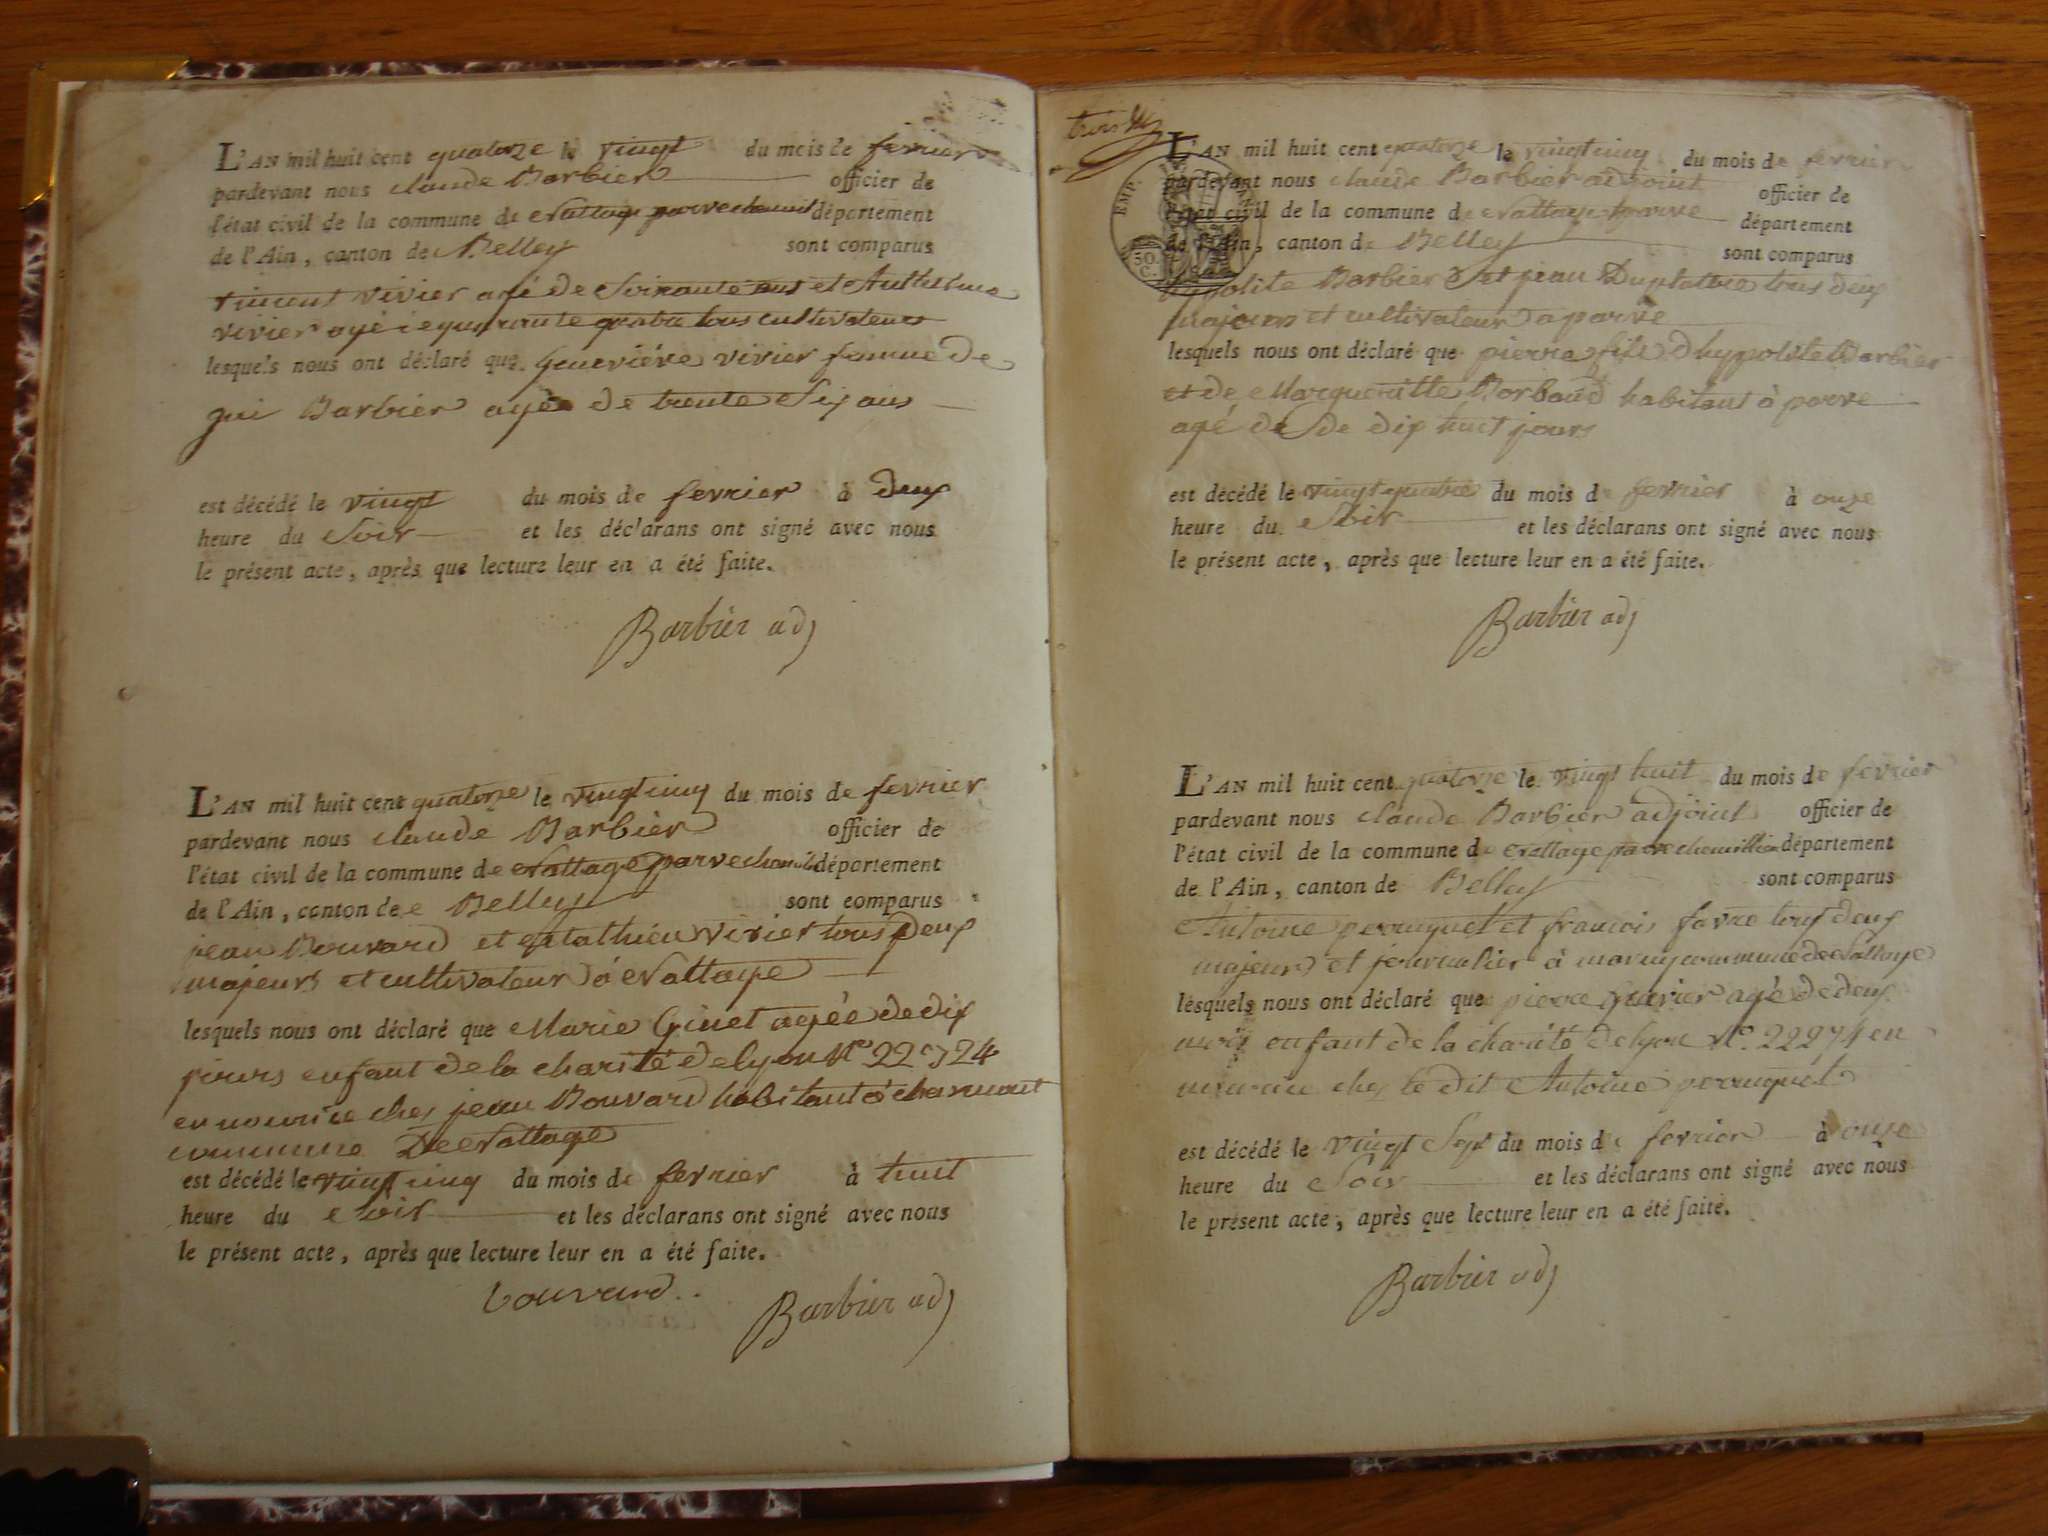 L'AN mil huit cent quatorze le vingt du mois de fevrier
pardevant nous claude Barbier officier de
l'état civil de la commune de evattage parve département
de l'Ain, canton de Belley sont comparus
vincent vivier agé de Soixante ans et Anthelme
vivier agé quarante quatre tous cultivateurs
lesquels nous ont déclaré que Geneviéve vivier femme de
gui Barbier agée de trente Six ans
est décédé le vingt du mois de fevrier à deux
heure du Soir et les déclarans ont signé avec nous
le présent acte, après que lecture leur en a été faite.
Barbier adj
L'AN mil huit cent quatorze le vingt cinq du mois de fevrier
pardevant nous claude Barbier officier de
l'état civil de la commune de evattage parve département
de l'Ain, canton de Belley sont comparus
jean Bouvard et Mathieu vivier tous deux
majeurs et cultivateur à evattage
lesquels nous ont déclaré que Marie Ginet agée de dix
jours enfant de la charité de lyon N° 22724
en nourice ches jean Bouvard habitant à
commune De evattage
est décédé le vingt cinq du mois de fevrier à huit
heure du Soir et les déclarans ont signé avec nous
le présent acte, après que lecture leur en a été faite.
bouvard..
Barbier adj
trois
EMP.
50.
C.
L'AN mil huit cent quatorze le vingt cinq du mois de fevrier
pardevant nous claude Barbier adjoint officier de
l'état civil de la commune de evattage parve département
de l'Ain, canton de Belley sont comparus
hypolite Barbier et jean Duplatre tous deux
majeurs et cultivateur a parve
lesquels nous ont déclaré que pierre fils d'hypolite Barbier
et de Margueritte Borbaud habitant à parve
agé de de dix huit jours
est décédé le vingt quatre du mois de fevrier à onze
heure du Soir et les déclarans ont signé avec nous
le présent acte, après que lecture leur en a été faite.
Barbier adj
L'AN mil huit cent quatorze le vingt huit du mois de fevrier
pardevant nous claude Barbier adjoint officier de
l'état civil de la commune de evattage parve chemillieu département
de l'Ain, canton de Belley sont comparus
Antoine perruquet et francois favre tous deux
majeurs et journalier à commune de evattage
lesquels nous ont déclaré que pierre agé de deux
mois enfant de la charité de lyon N°. 22974 en
nourice ches le dit Antoine perruquet
est décédé le vingt Sept du mois de fevrier à onze
heure du Soir et les déclarans ont signé avec nous
le présent acte, après que lecture leur en a été faite.
Barbier adj